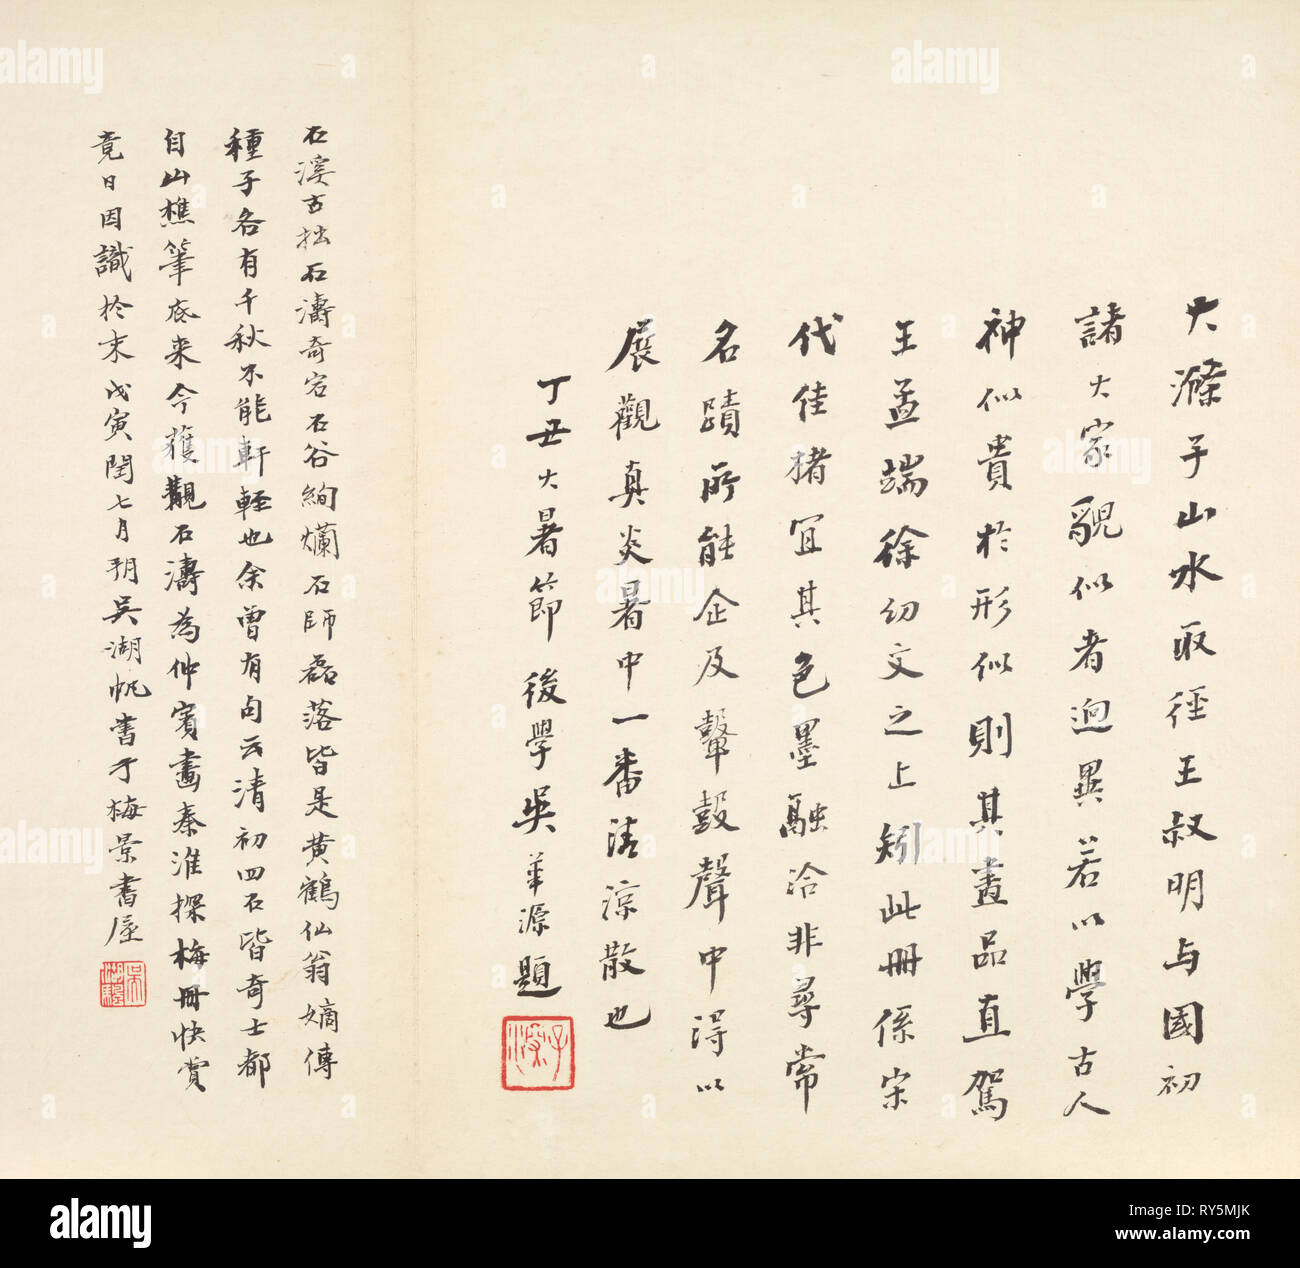 大滌子山水取徑王叔明与國初
諸大家貌似者迥異若以學古人
神似貴於形似則其畫品直駕
王孟端徐幼文之上矧此册係宋
代佳楮宜其色墨融洽非尋常
名蹟所能企及鼙鼓聲中得以
展觀真炎暑中一番清涼散也
丁丑大暑節後學吳華源題
石溪古拙石濤奇宕石谷絢爛石師磊落皆是黄鶴仙翁嫡傳
種子各有千秋不能軒輊也余曾有句云清初四石皆奇士都
自山樵筆底来今獲觀石濤為仲賓畫秦淮探梅册快賞
竟日因識於末戊寅閏七月朔吳湖帆書于梅景書屋
alamy
Image ID: RY5MJK
www.alamy.com